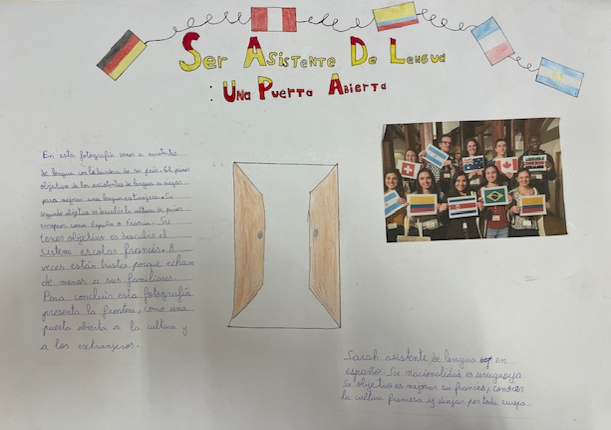 Ser Asistente De Lengua
: Una Puerta Abierta
En esta fotografía vemos a asistentes
de lengua con la bandera de su país. El primer
objetivo de los asistentes de lengua es mejorar
para mejorar una lengua extranjera. Su
segundo objetivo es descubrir la cultura de países
europeos como España o Francia. Su
tercer objetivo es descubrir el
sistema escolar francés. A
veces están tristes porque echan
de menos a sus familiares.
Para concluir esta fotografía
presenta la frontera, como una
puerta abierta a la cultura y
a los extranjeros.
Sarah asistente de lengua en
español. Su nacionalidad es uruguaya
Su objetivo es mejorar su francés, conocer
la cultura francesa y viajar por toda europa.